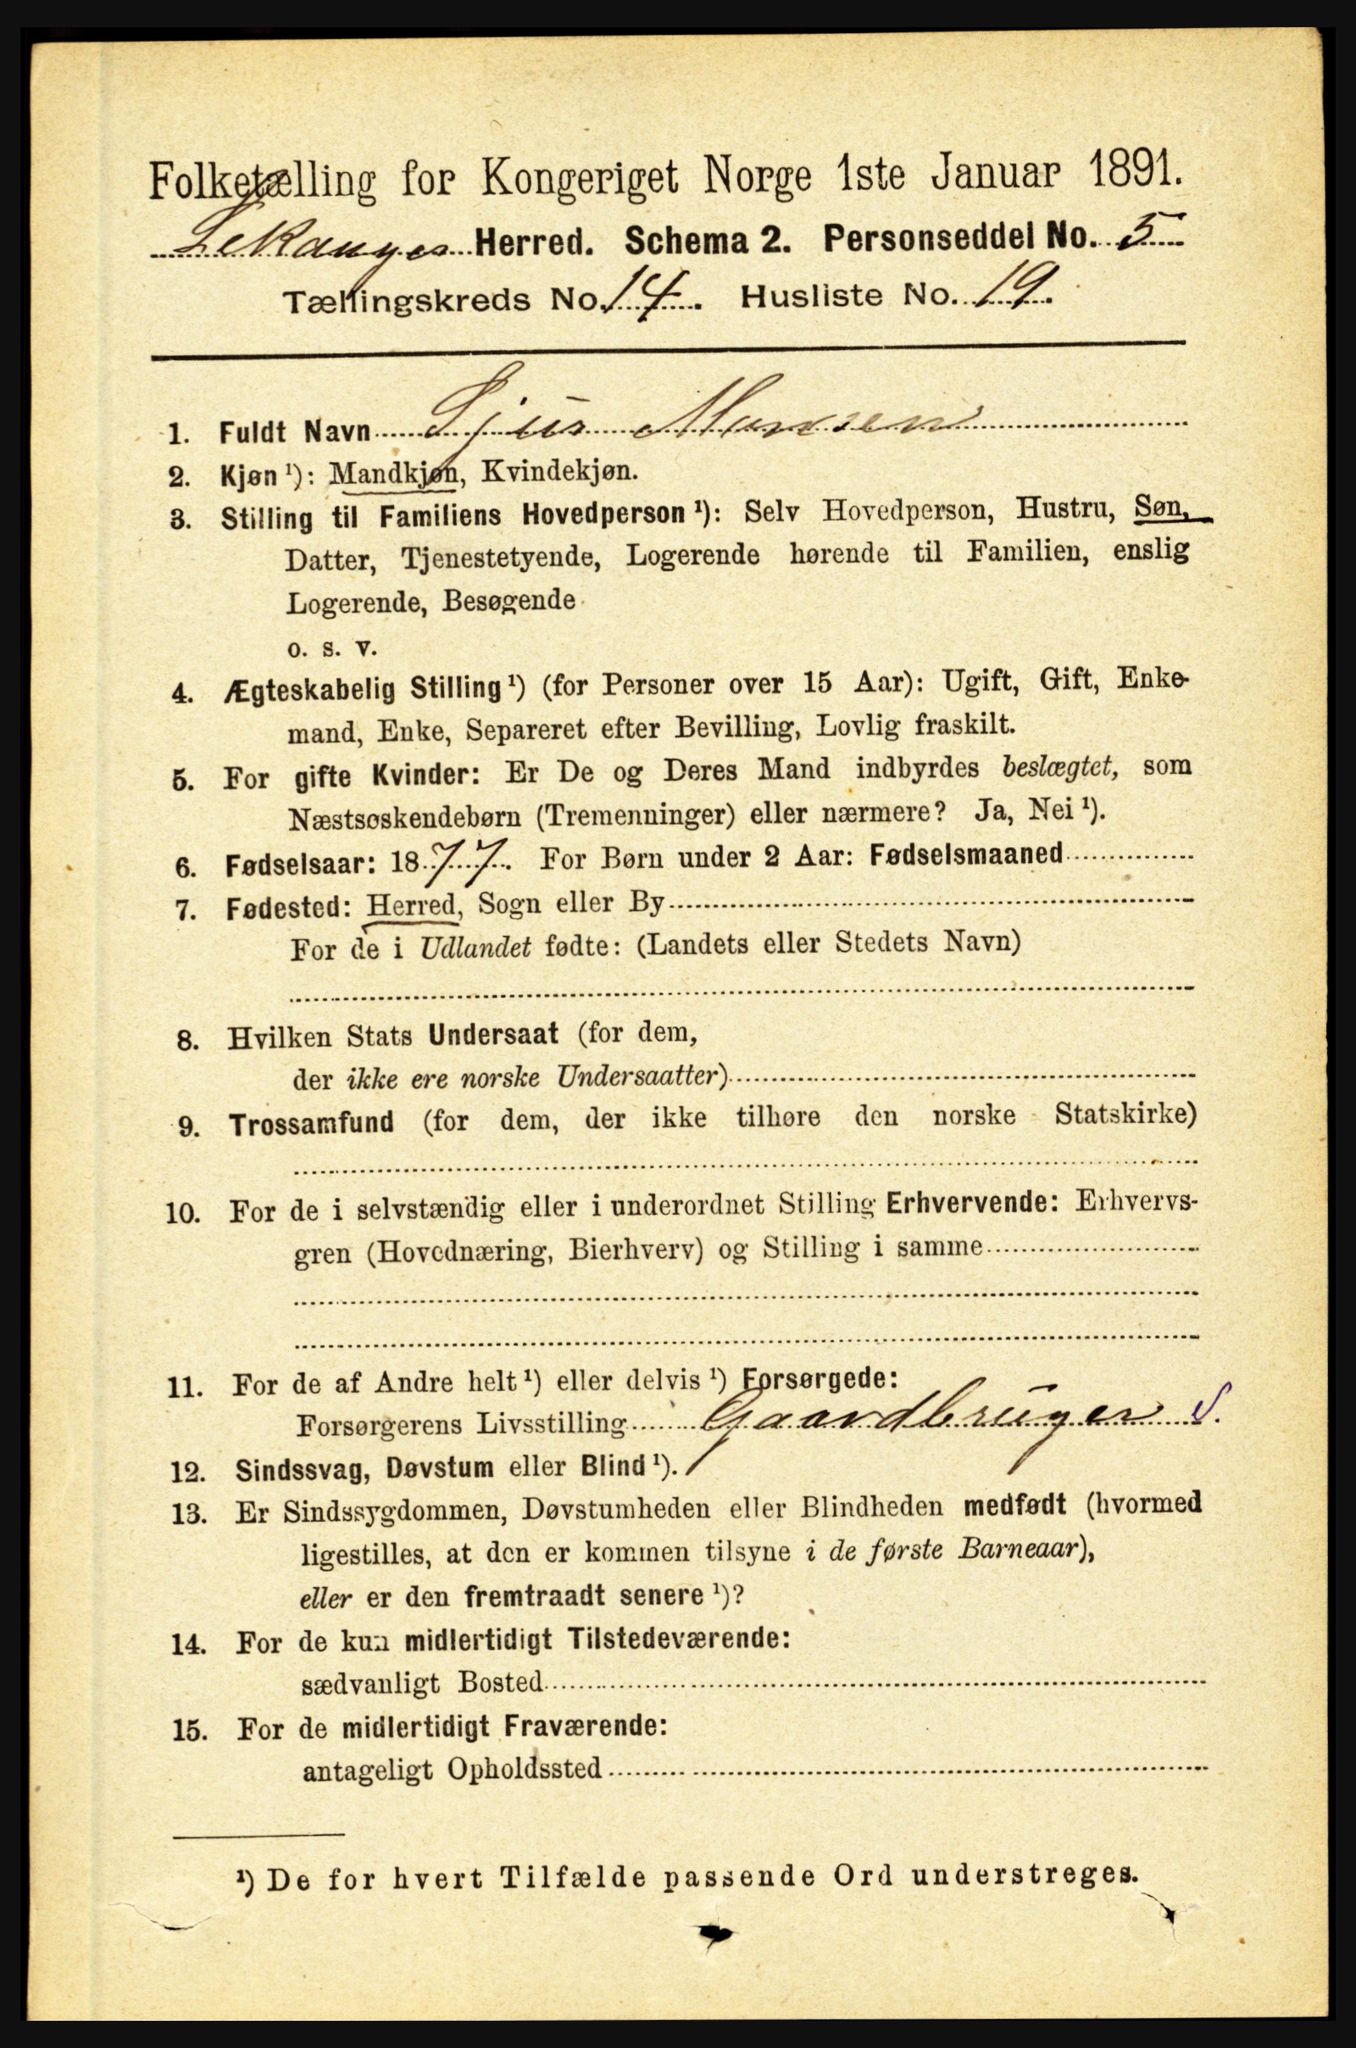 Folketælling for Kongeriget Norge 1ste Januar 1891.
Lekanger Herred. Schema 2. Personseddel No. 5
Tællingskreds No. 14. Husliste No. 19.
1. Fuldt Navn Sjur Monsen
2. Kjøn ¹): Mandkjøn, Kvindekjøn.
3. Stilling til Familiens Hovedperson ¹): Selv Hovedperson, Hustru, Søn,
Datter, Tjenestetyende, Logerende hørende til Familien, enslig
Logerende, Besøgende
o. s. v.
4. Ægteskabelig Stilling ¹) (for Personer over 15 Aar): Ugift, Gift, Enke-
mand, Enke, Separeret efter Bevilling, Lovlig fraskilt.
5. For gifte Kvinder: Er De og Deres Mand indbyrdes beslægtet, som
Næstsøskendebørn (Tremenninger) eller nærmere? Ja, Nei ¹).
6. Fødselsaar: 1877. For Børn under 2 Aar: Fødselsmaaned
7. Fødested: Herred, Sogn eller By
For de i Udlandet fødte: (Landets eller Stedets Navn)
8. Hvilken Stats Undersaat (for dem,
der ikke ere norske Undersaatter)
9. Trossamfund (for dem, der ikke tilhøre den norske Statskirke)
10. For de i selvstændig eller i underordnet Stilling Erhvervende: Erhvervs-
gren (Hovednæring, Bierhverv) og Stilling i samme
11. For de af Andre helt ¹) eller delvis ¹) Forsørgede:
Forsørgerens Livsstilling Gaardbruger S.
12. Sindssvag, Døvstum eller Blind ¹).
13. Er Sindssygdommen, Døvstumheden eller Blindheden medfødt (hvormed
ligestilles, at den er kommen tilsyne i de første Barneaar),
eller er den fremtraadt senere ¹)?
14. For de kun midlertidigt Tilstedeværende:
sædvanligt Bosted
15. For de midlertidigt Fraværende:
antageligt Opholdssted
¹) De for hvert Tilfælde passende Ord understreges.